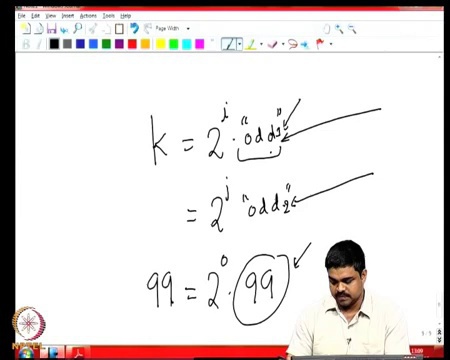 File Edit View Insert Actions Tools Help
Page Width
B
k = 2^i . "odd1"
= 2^j "odd2"
99 = 2^0 . 99